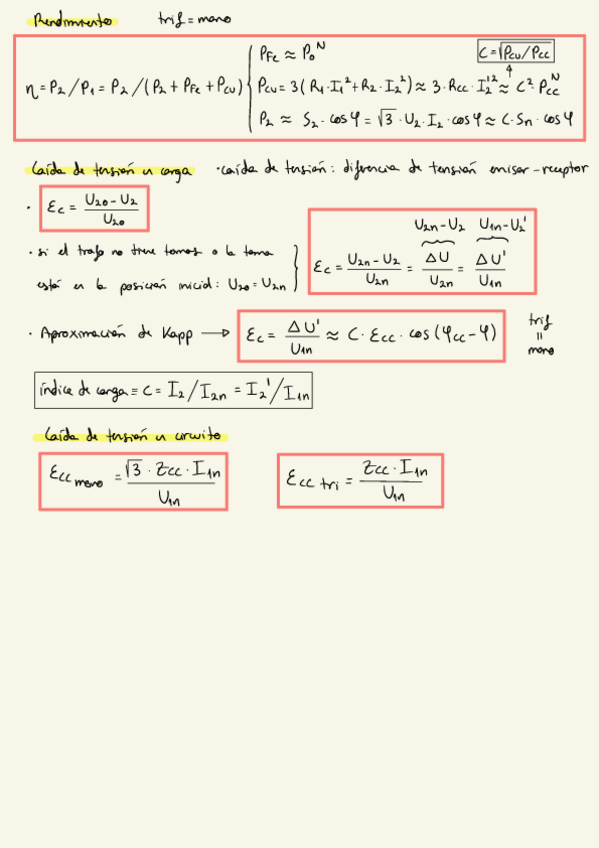 Rendimiento trif = mono
η = P₂/P₁ = P₂/(P₂ + P_Fe + P_Cu)
P_Fe ≈ P₀ᴺ C = √P_Cu/P_CC
P_Cu = 3(R₁·I₁² + R₂·I₂²) ≈ 3·R_CC·I₂'² ≈ C²·P_CCᴺ
P₂ ≈ S₂·cosφ = √3·U₂·I₂·cosφ ≈ C·Sₙ·cosφ
Caída de tensión en carga · caída de tensión: diferencia de tensión emisor-receptor
· Ec = (U₂₀ - U₂)/U₂₀
U₂ₙ-U₂ U₁ₙ-U₂'
· si el trafo no tiene tomas o la toma
está en la posición inicial: U₂₀ = U₂ₙ
Ec = (U₂ₙ - U₂)/U₂ₙ = ΔU/U₂ₙ = ΔU'/U₁ₙ
· Aproximación de Kapp → Ec = ΔU'/U₁ₙ ≈ C·Ecc·cos(φcc - φ) trif = mono
índice de carga ≡ C = I₂/I₂ₙ = I₂'/I₁ₙ
Caída de tensión en circuito
Ecc mono = (√3·Zcc·I₁ₙ)/U₁ₙ Ecc tri = (Zcc·I₁ₙ)/U₁ₙ